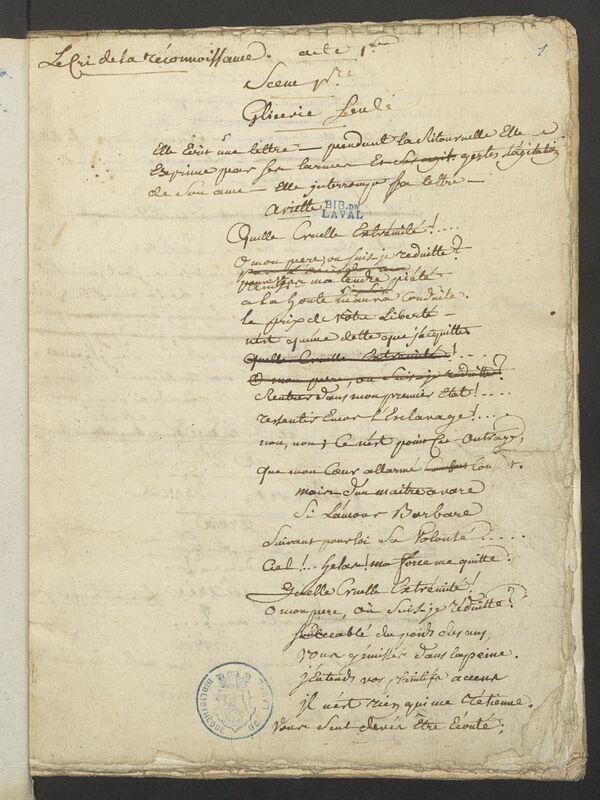 Le Cri de la reconnoissance. acte 1er
1
Scene 1re
Glicerie seule
Elle Ecrit une lettre — pendant la Ritournelle Elle
Exprime par ses larmes Et ses gestes l'agitation
de son ame — Elle interrompt sa lettre —
Ariette
BIB. DE
LAVAL
Quelle Cruelle Extrémité !....
O mon pere, ou suis-je reduitte ?
ma tendre piété
a la honte m'aura conduite.
le prix de votre liberté —
n'est qu'une dette que j'acquitte
Quelle Cruelle Extremité !....
O mon pere, ou suis-je reduitte ?
Rentrer dans mon premier Etat !....
ressentir Encor l'Esclavage !....
non, non, Ce n'est point Cet Outrage,
que mon Cœur allarmé
mais d'un maitre avare
Si l'amour Barbare
Suivant pour loi Sa Volonté.....
Ciel !... helas ! ma force me quitte.
Quelle Cruelle Extremité !
O mon pere, où suis-je réduitte ?
accablé du poids des ans,
vous gémissés dans la peine.
j'Entends vos plaintifs accens
il n'est rien qui me retienne.
Vous seul devés Être Ecouté ;
BIBLIOTHEQUE DE LAVAL